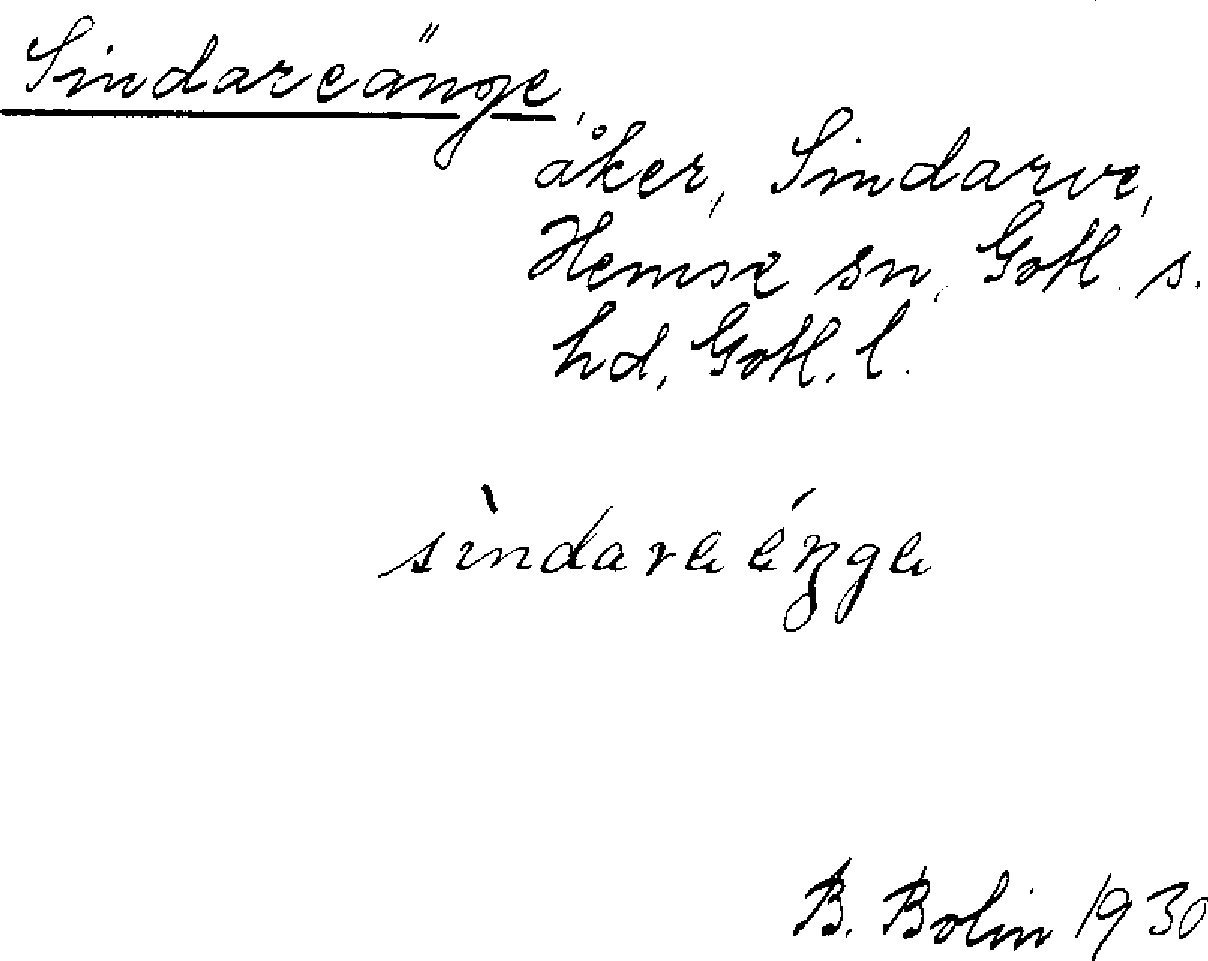 Sindareänge,
åker, Sindarve,
Hemse sn, Gotl. s.
hd, Gotl. l.
sìndara éŋga
B. Bolin 1930